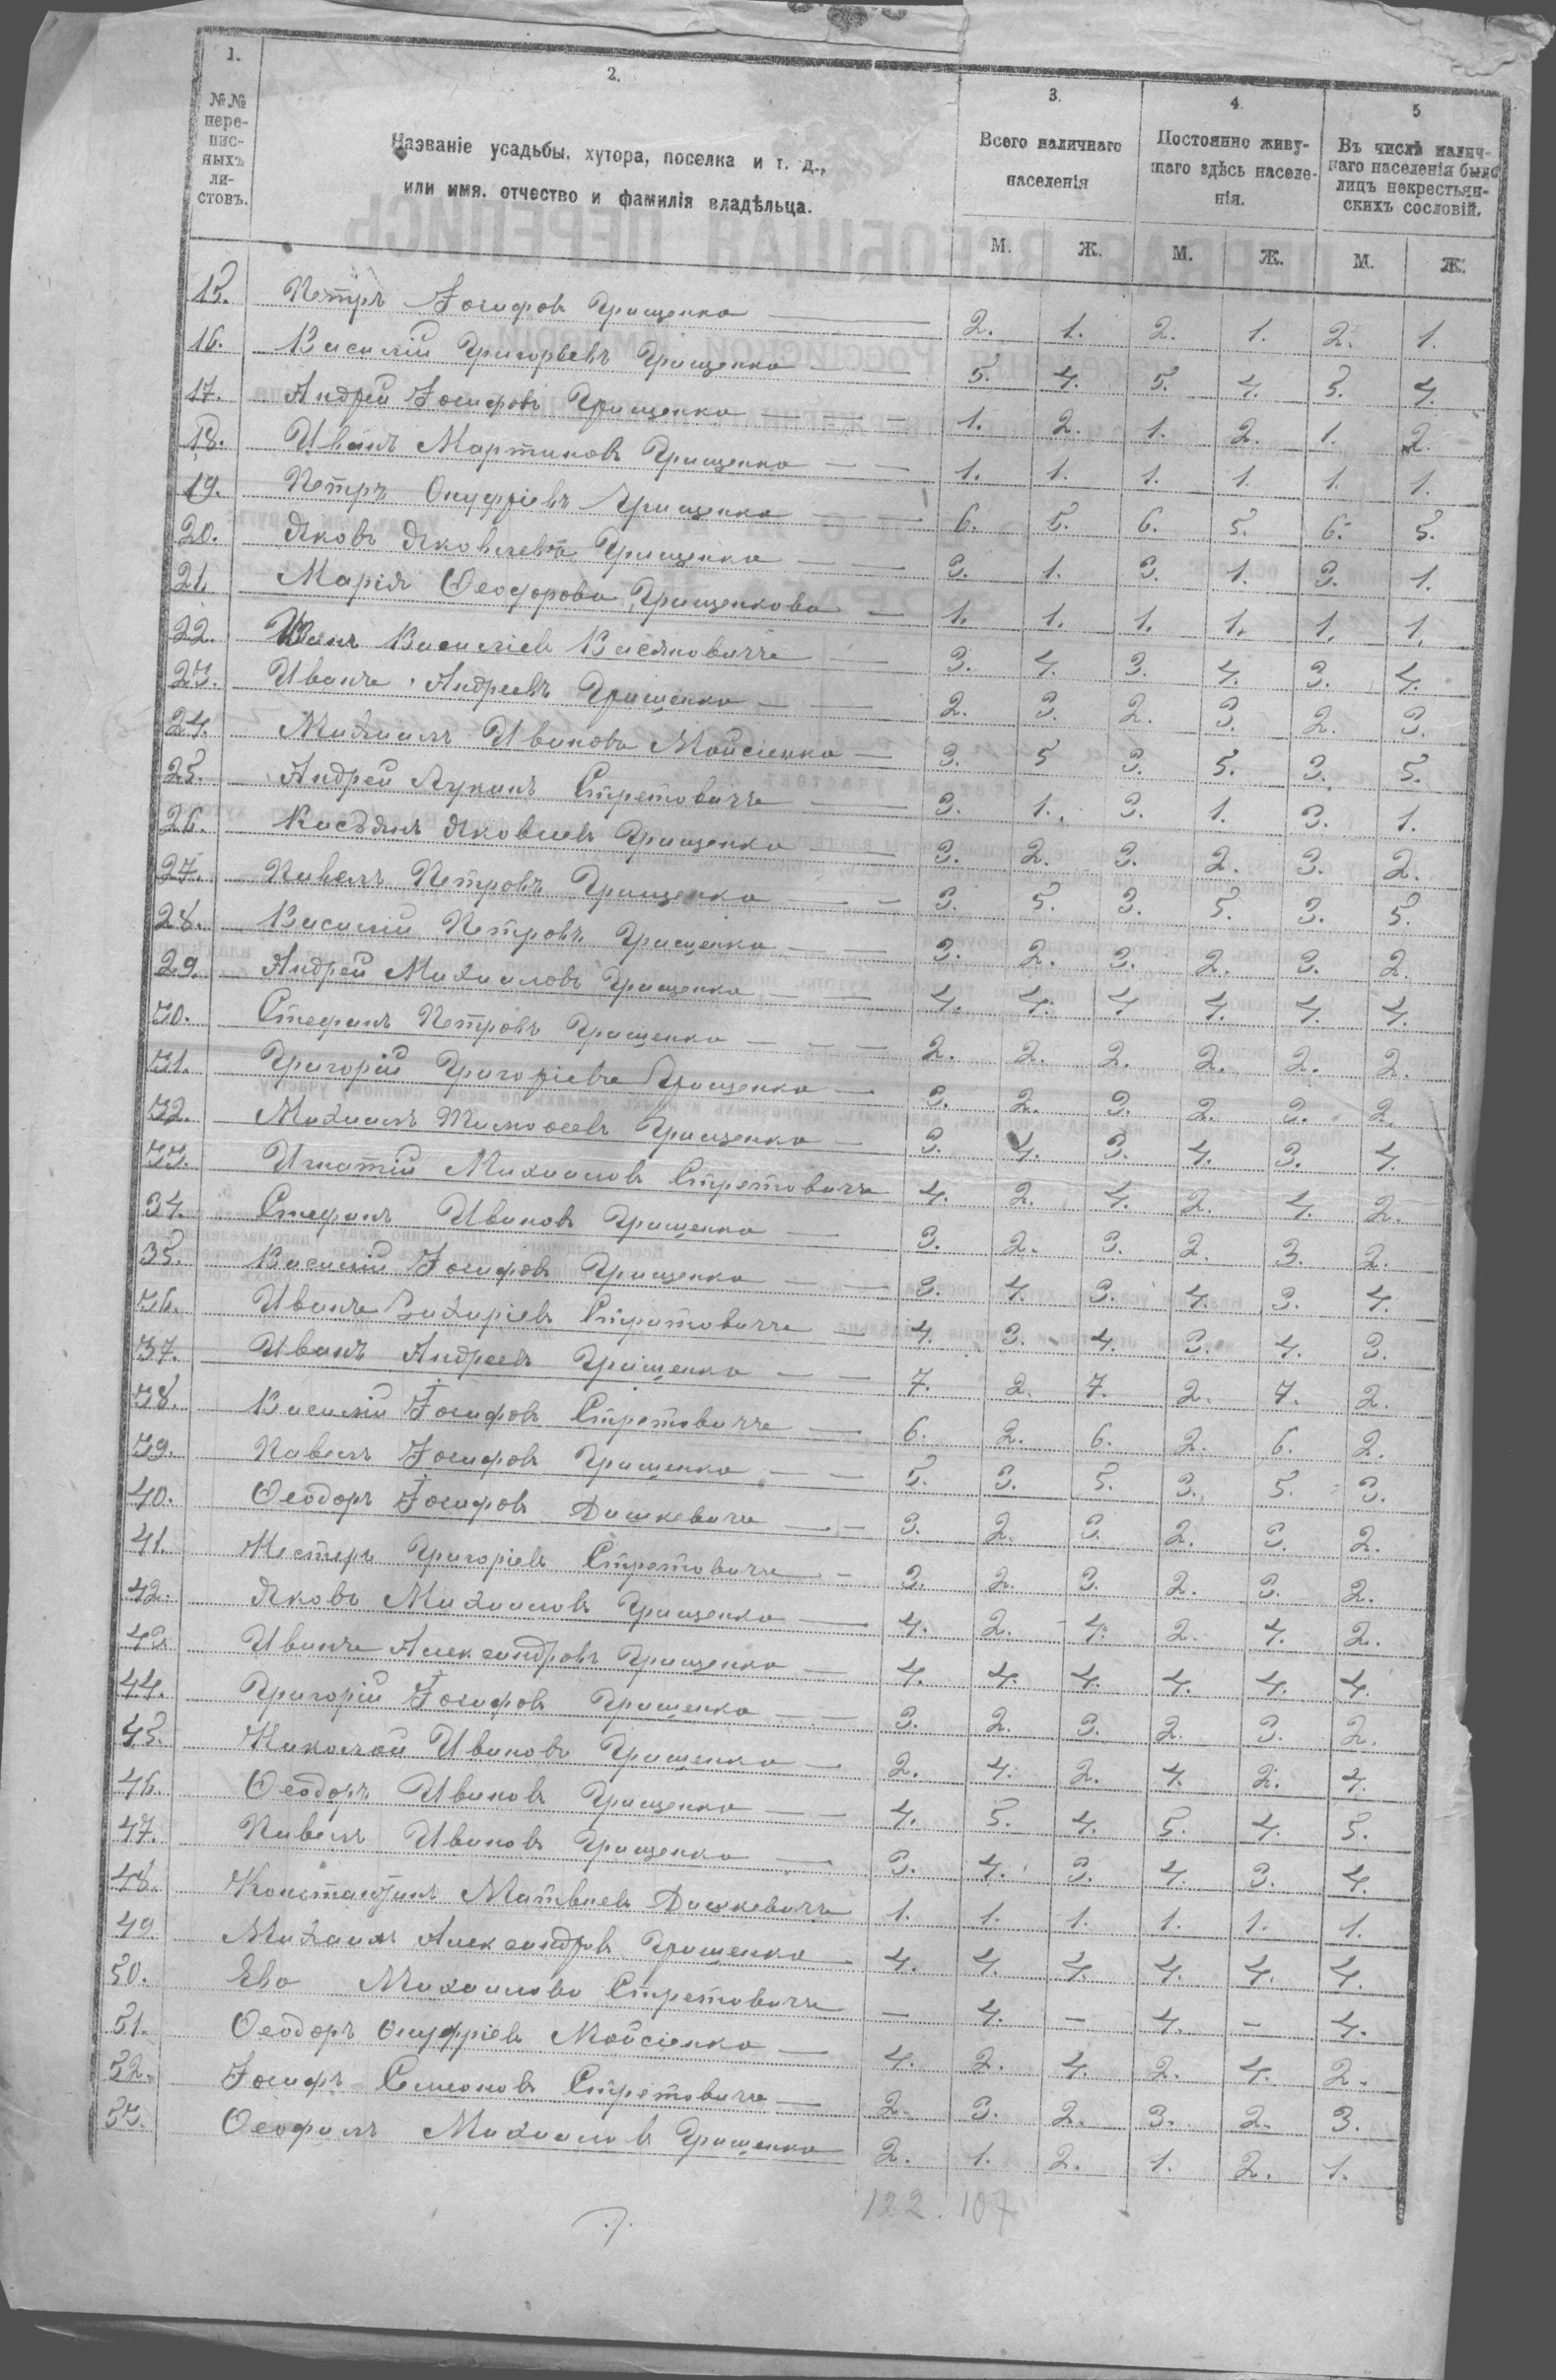 1. 2. 3. 4. 5
№№ пере-писныхъ ли-стовъ.
Названіе усадьбы, хутора, поселка и т. д., или имя, отчество и фамилія владѣльца.
Всего наличнаго населенія
Постоянно живу-щаго здѣсь населе-нія.
Въ числѣ налич-наго населенія было лицъ некрестьян-скихъ сословій.
М. Ж. М. Ж. М. Ж.
15. Петръ Іосифовъ Грищенко 2. 1. 2. 1. 2. 1.
16. Василій Григорьевъ Грищенко 5. 4. 5. 4. 5. 4.
17. Андрей Іосифовъ Грищенко 1. 2. 1. 2. 1. 2.
18. Иванъ Мартиновъ Грищенко 1. 1. 1. 1. 1. 1.
19. Петръ Онуфріевъ Грищенко 6. 5. 6. 5. 6. 5.
20. Яковъ Яковлевъ Грищенко 3. 1. 3. 1. 3. 1.
21. Марія Ѳеодорова Грищенкова 1. 1. 1. 1. 1. 1.
22. Иванъ Василіевъ Касяновичъ 3. 4. 3. 4. 3. 4.
23. Иванъ Андреевъ Грищенко 2. 3. 2. 3. 2. 3.
24. Михаилъ Ивановъ Мойсіенко 3. 5 3. 5. 3. 5.
25. Андрей Лукинъ Стретовичъ 3. 1. 3. 1. 3. 1.
26. Касьянъ Яковлевъ Грищенко 3. 2. 3. 2. 3. 2.
27. Павелъ Петровъ Грищенко 3. 5. 3. 5. 3. 5.
28. Василій Петровъ Грищенко 3. 2. 3. 2. 3. 2.
29. Андрей Михаиловъ Грищенко 4. 4. 4 4. 4. 4.
30. Стефанъ Петровъ Грищенко 2. 2. 2. 2. 2. 2.
31. Григорій Григоріевъ Грищенко 3. 2. 3. 2. 3. 2.
32. Михаилъ Тимоѳеевъ Грищенко 3. 4. 3. 4. 3. 4.
33. Игнатій Михаиловъ Стретовичъ 4. 2. 4. 2. 4. 2.
34. Стефанъ Ивановъ Грищенко 3. 2. 3. 2. 3. 2.
35. Василій Іосифовъ Грищенко 3. 4. 3. 4. 3. 4.
36. Иванъ Захаріевъ Стретовичъ 4. 3. 4. 3. 4. 3.
37. Иванъ Андреевъ Грищенко 7. 2. 7. 2. 7. 2.
38. Василій Іосифовъ Стретовичъ 6. 2. 6. 2. 6. 2.
39. Павелъ Іосифовъ Грищенко 5. 3. 5. 3. 5. 3.
40. Ѳеодоръ Іосифовъ Дашкевичъ 3. 2. 3. 2. 3. 2.
41. Нестеръ Григоріевъ Стретовичъ 3. 2. 3. 2. 3. 2.
42. Яковъ Михаиловъ Грищенко 4. 2. 4. 2. 4. 2.
43. Иванъ Александровъ Грищенко 4. 4. 4. 4. 4. 4.
44. Григорій Іосифовъ Грищенко 3. 2. 3. 2. 3. 2.
45. Николай Ивановъ Грищенко 2. 4. 2. 4. 2. 4.
46. Ѳеодоръ Ивановъ Грищенко 4. 5. 4. 5. 4. 5.
47. Павелъ Ивановъ Грищенко 3. 4. 3. 4. 3. 4.
48. Константинъ Матвѣевъ Дашкевичъ 1. 1. 1. 1. 1. 1.
49. Михаилъ Александровъ Грищенко 4. 4. 4. 4. 4. 4.
50. Ева Михаилова Стретовичъ — 4. — 4. — 4.
51. Ѳеодоръ Онуфріевъ Мойсіенко 4. 2. 4. 2. 4. 2.
52. Іосифъ Семеновъ Стретовичъ 2. 3. 2. 3. 2. 3.
53. Ѳеофилъ Михаиловъ Грищенко 2. 1. 2. 1. 2. 1.
122. 107